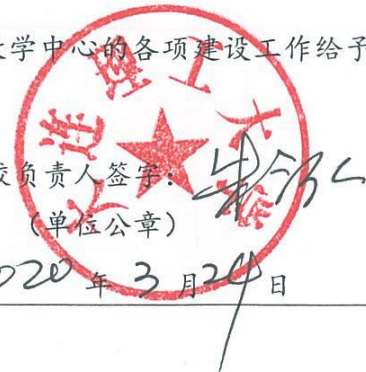 学中心的各项建设工作给予
大連理工大学
校负责人签字:
(单位公章)
020 年 3 月 24 日